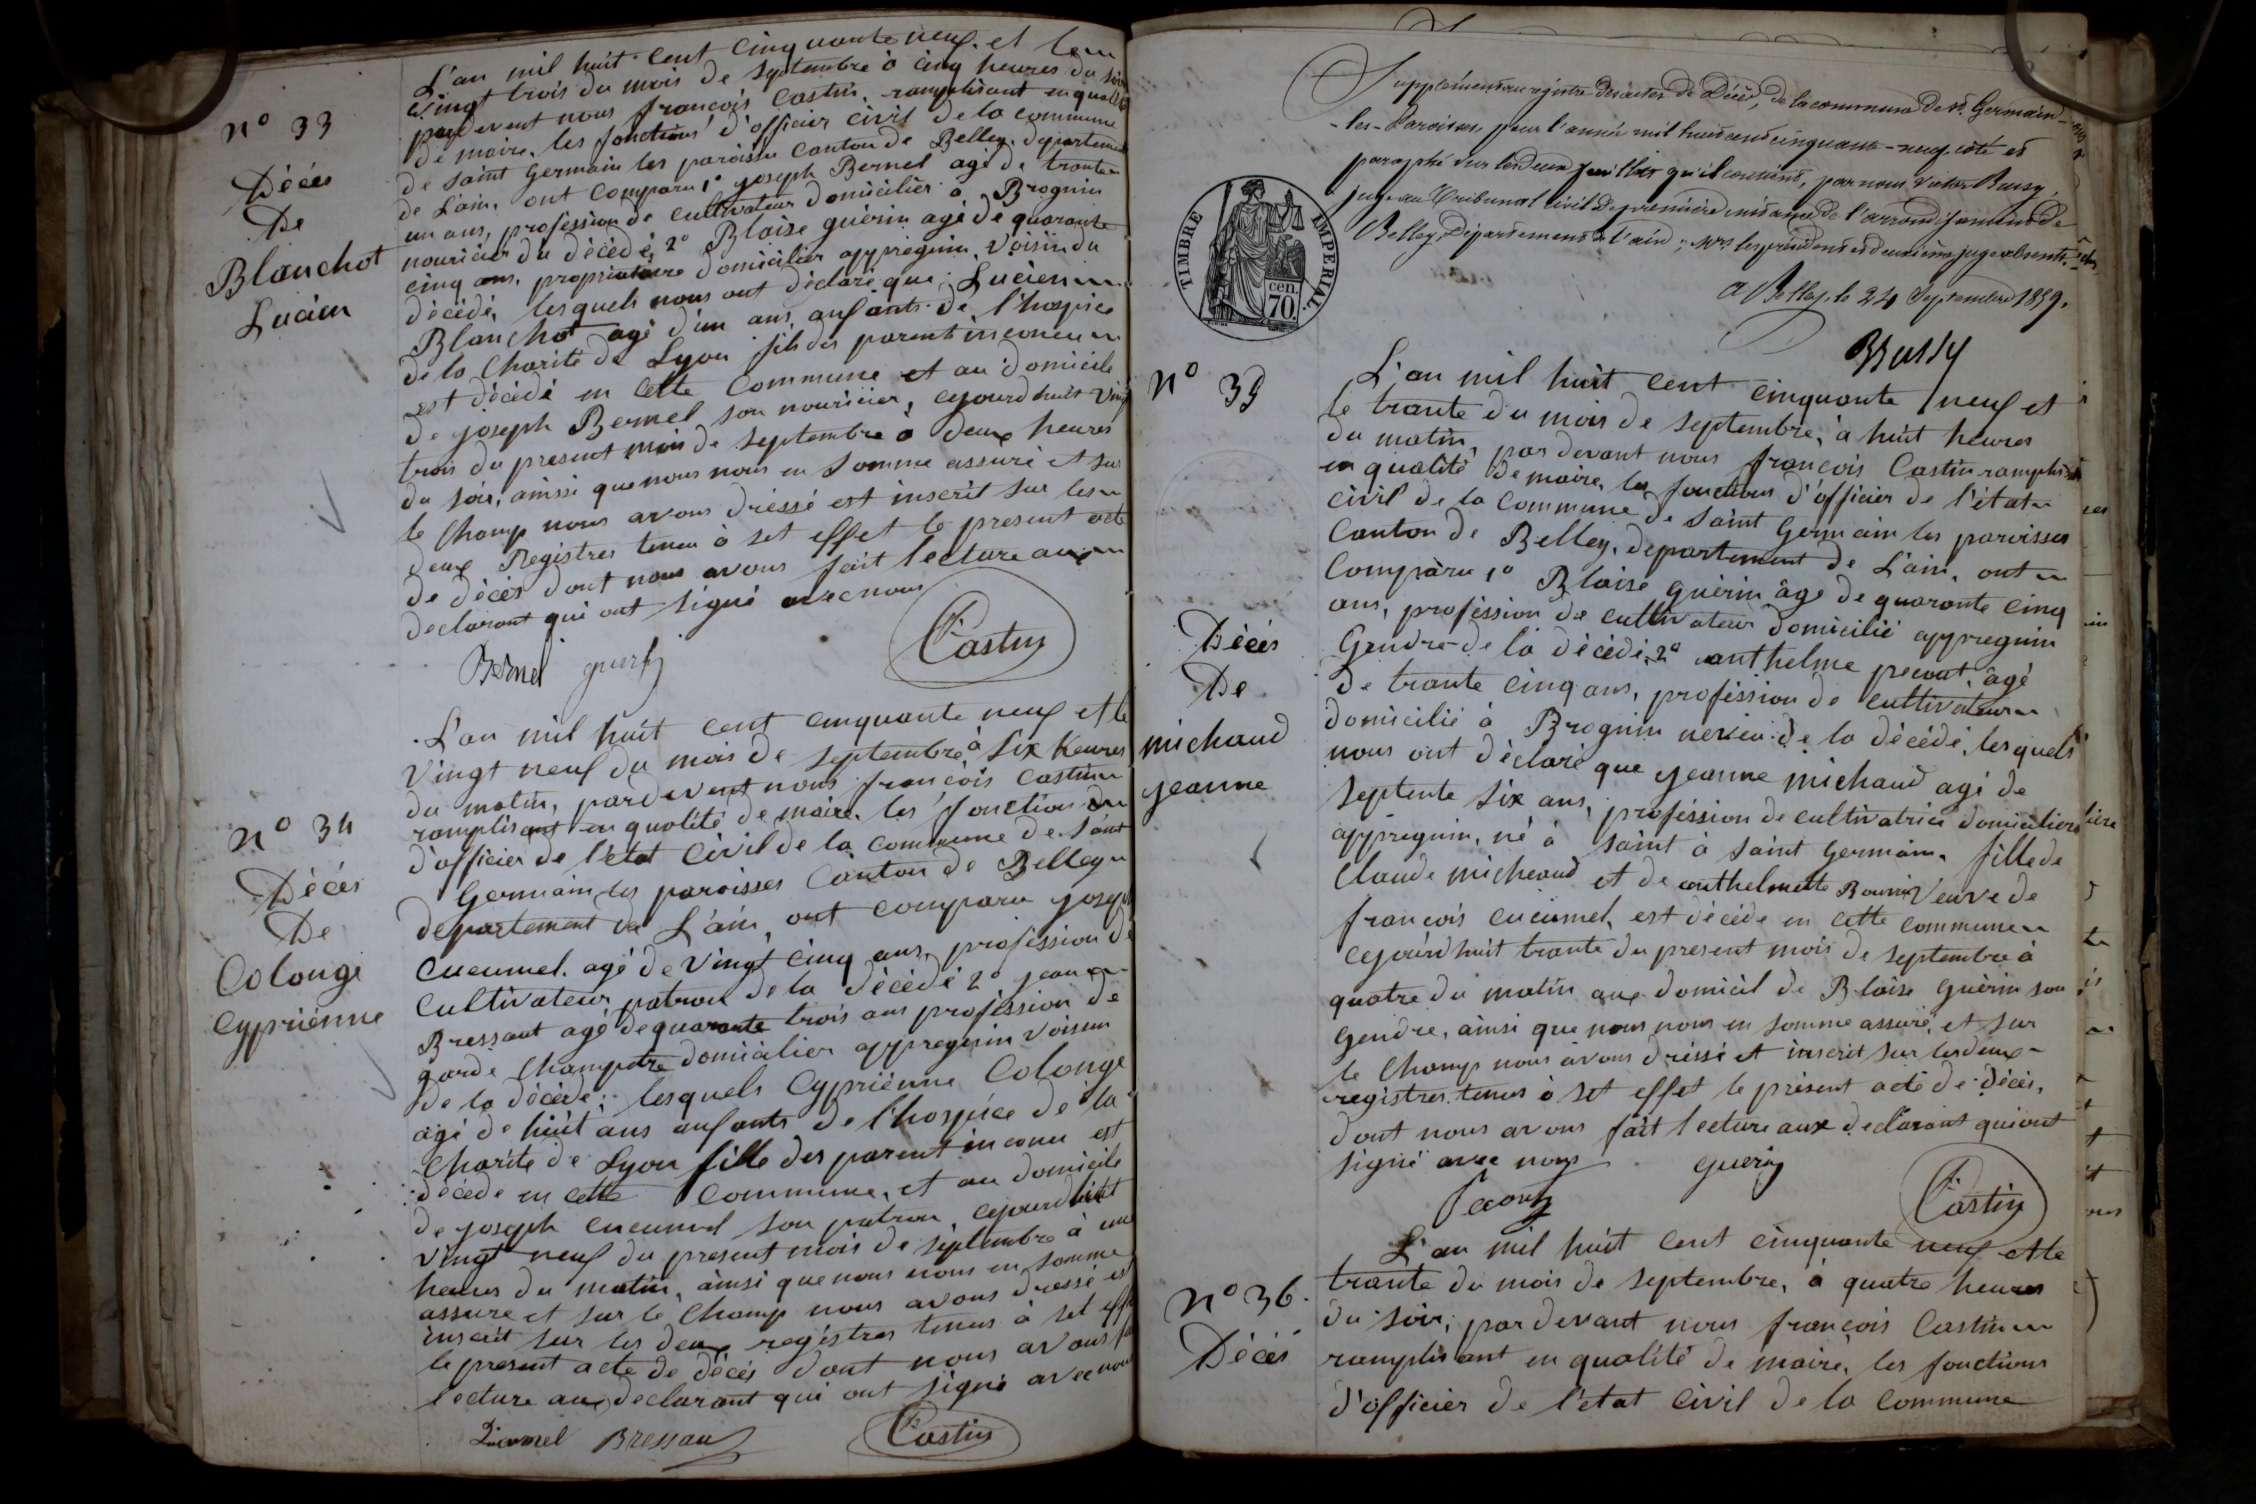 n° 33
Décés
De
Blanchot
Lucien
L'an mil huit cent cinquante neuf et le
vingt trois du mois de septembre à cinq heures du soir
pardevent nous françois Castin, ramplisant en qualité
de maire, les fonctions d'officier civil de la commune
de saint Germain les paroisses Canton de Belley, departement
de L'ain, ont comparu 1° joseph Bernel agé de trante
un ans, profession de cultivateur domicilier à Brognin
nouricier du décédé, 2° Blaise guérin agé de quarante
cinq ans, propriétaire domicilier appregnin, voisin du
décédé, lesquels nous ont déclaré que Lucien
Blanchot agé d'un ans, anfants de l'hospice
de la Charité de Lyon fils des parent inconeu
est décédé en cette Commune et au domicile
de joseph Bernel son nouricier, cejourdhuit vingt
trois du present mois de septembre à deux heures
du soir, ainssi que nous nous en somme assuré et sur
le champ nous avons dressé est inscrit sur les
deux Registres tenu à set effet le present acte
de décès dont nous avons fait lecture aux
declarant qui ont signé avec nous
Bernel guerin Castin
n° 34
Décés
De
Colonge
Cypriénne
L'an mil huit cent cinquante neuf et le
vingt neuf du mois de septembre à six heures
du matin, pardevent nous françois Castin
ramplisant en qualité de maire, les fonction
d'officier de l'état Civil de la commune de saint
Germain les paroisses Canton de Belley
departement de L'ain, ont comparu joseph
Cucumel agé de vingt cinq ans, profession de
Cultivateur patron de la décédé 2° jean
Bressant agé de quarante trois ans profession de
garde champetre domicilier appregnin voisin
de la décédé, lesquels Cypriénne Colonge
agé de huit ans anfants de l'hospice de la
Charité de Lyon fille des parent inconu est
décédé en cette Commune, et au domicile
de joseph cucumel son patron, cejourdhuit
vingt neuf du present mois de septembre à une
heures du matin, ainsi que nous nous en somme
assure et sur le Champ nous avons dressé est
inscrit sur les deux registres tenus à set effet
le present acte de décés dont nous avons fait
lecture aux declarant qui ont signé avec nous
Cucumel Bressant Castin
Supplément au registre des actes de Décès, de la commune de St. Germain-
-les-Paroisses, pour l'année mil huit cent cinquante-neuf, coté et
paraphé sur les deux feuillets qu'il contient, par nous, Victor Bussy,
juge au Tribunal civil de première instance de l'arrondissement de
Belley, Département de l'ain; Mrs les président et deuxième juge absents.
A Belley, le 24 Septembre 1859.
Bussy
TIMBRE IMPERIAL.
cen.
70.
n° 35
Décés
De
michaud
jeanne
L'an mil huit cent cinquante neuf et
le trante du mois de septembre, à huit heures
du matin, par devant nous françois Castin ramplisant
en qualité de maire, les fonctions d'officier de l'état
civil de la commune de saint Germain les paroisses
Canton de Belley, departement de L'ain, ont
Comparu 1° Blaise guérin âgé de quarante cinq
ans, profession de cultivateur domicilié appregnin
Gendre de la décédé, 2° anthelme pecout, âgé
de trante cinq ans, profession de cultivateur
domicilié à Brognin neveu de la décédé, lesquels
nous ont déclaré que jeanne michaud agé de
septente six ans, profession de cultivatrice domicilière
appregnin, né à saint à saint Germain, fille de
Claude micheaud et de anthelmette Veuve de
françois cucumel, est décédé en cette commune
cejourd'huit trante du present mois de septembre à
quatre du matin aux domicil de Blaise Guérin son
gendre, ainsi que nous nous en somme assuré, et sur
le Champ nous avons dréssé et inscrit sur les deux
registres tenus à set effet le présent acte de décès,
dont nous avons fait lecture aux declarant qui ont
signé avec nous guerin
Pecout Castin
n° 36.
Décés
L'an mil huit cent cinquante neuf et le
trante du mois de septembre, à quatre heures
du soir, par devant nous françois Castin
ramplisant en qualité de maire, les fonctions
d'officier de l'état civil de la commune